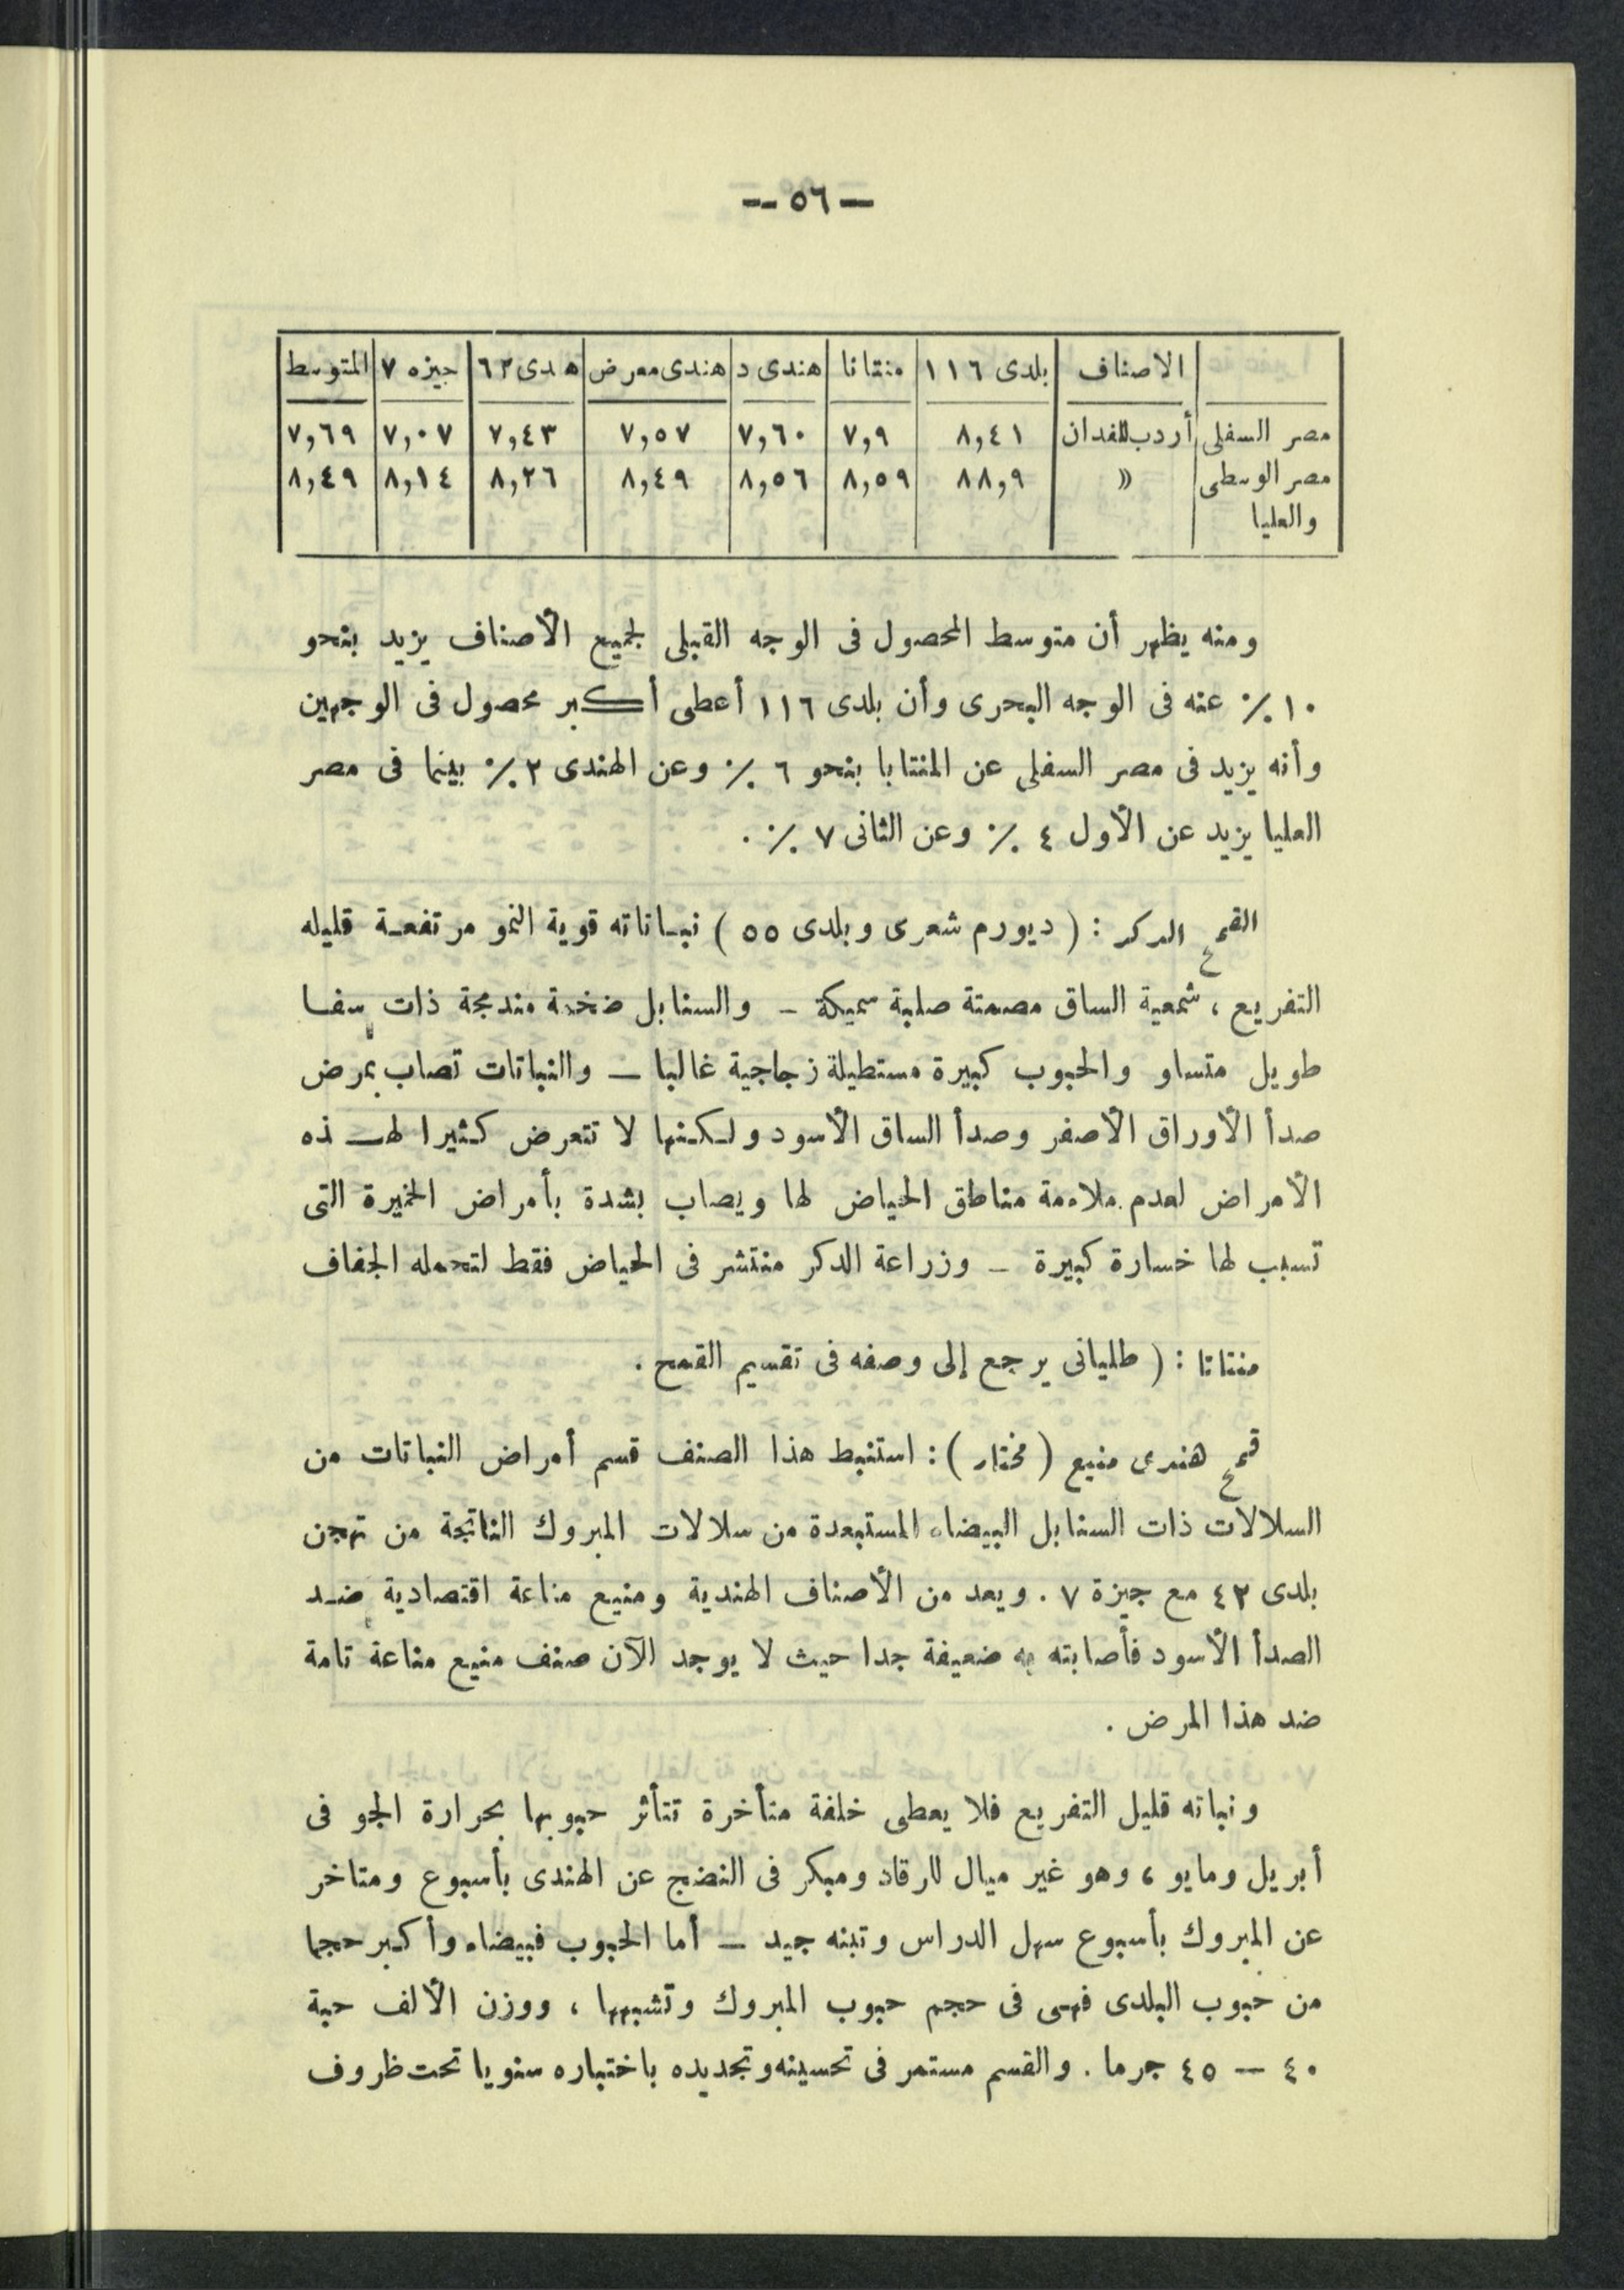 — ٥٦ —
الاصناف بلدى ١١٦ منتانا هندى د هندى معرض هدى ٦٢ جيزه ٧ المتوسط
مصر السفلى أردب للفدان ٨,٤١ ٧,٩ ٧,٦٠ ٧,٥٧ ٧,٤٣ ٧,٠٧ ٧,٦٩
مصر الوسطى » ٨٨,٩ ٨,٥٩ ٨,٥٦ ٨,٤٩ ٨,٢٦ ٨,١٤ ٨,٤٩
والعليا
ومنه يظهر أن متوسط المحصول فى الوجه القبلى لجميع الأصناف يزيد بنحو
١٠ ٪ عنه فى الوجه البحرى وأن بلدى ١١٦ أعطى أكبر محصول فى الوجهين
وأنه يزيد فى مصر السفلى عن المنتابا بنحو ٦ ٪ وعن الهندى ٢ ٪ بينما فى مصر
العليا يزيد عن الأول ٤ ٪ وعن الثانى ٧ ٪ .
القمح الدكر : ( ديورم شعرى وبلدى ٥٥ ) نباتاته قوية النمو مرتفعة قليله
التفريع ، شمعية الساق مصمتة صلبة سميكة – والسنابل ضخمة مندمجة ذات سفا
طويل متساو والحبوب كبيرة مستطيلة زجاجية غالبا – والنباتات تصاب بمرض
صدأ الأوراق الأصفر وصدأ الساق الأسود ولكنها لا تتعرض كثيرا لهذه
الأمراض لعدم ملاءمة مناطق الحياض لها ويصاب بشدة بأمراض الخميرة التى
تسبب لها خسارة كبيرة – وزراعة الدكر منتشر فى الحياض فقط لتحمله الجفاف
منتاتا : ( طليانى يرجع إلى وصفه فى تقسيم القمح .
قمح هندى منيع ( مختار ) : استنبط هذا الصنف قسم أمراض النباتات من
السلالات ذات السنابل البيضاء المستبعدة من سلالات المبروك الناتجة من تهجن
بلدى ٤٢ مع جيزة ٧ . ويعد من الأصناف الهندية ومنيع مناعة اقتصادية ضد
الصدأ الأسود فأصابته به ضعيفة جدا حيث لا يوجد الآن صنف منيع مناعة تامة
ضد هذا المرض .
ونباته قليل التفريع فلا يعطى خلفة متأخرة تتأثر حبوبها بحرارة الجو فى
أبريل ومايو ، وهو غير ميال للرقاد ومبكر فى النضج عن الهندى بأسبوع ومتاخر
عن المبروك بأسبوع سهل الدراس وتبنه جيد – أما الحبوب فبيضاء وأكبر حجما
من حبوب البلدى فهى فى حجم حبوب المبروك وتشبهها ، ووزن الألف حبة
٤٠ – ٤٥ جرما . والقسم مستمر فى تحسينه وتجديده باختباره سنويا تحت ظروف